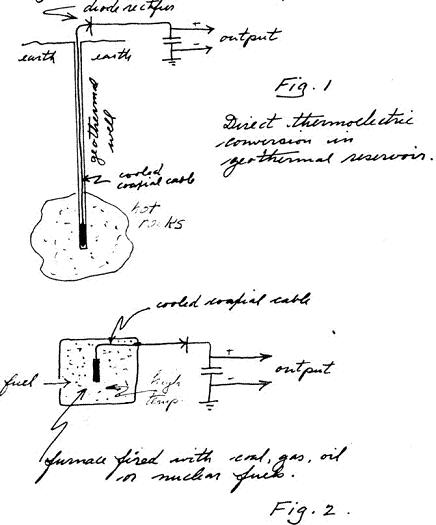 diode rectifier
+
-
output
earth
earth
geothermal
well
Fig. 1
Direct thermoelectric
conversion in
geothermal reservoir.
cooled
coaxial cable
hot
rocks
cooled coaxial cable
+
-
output
fuel
high
temp.
furnace fired with coal, gas, oil
or nuclear fuels.
Fig. 2.